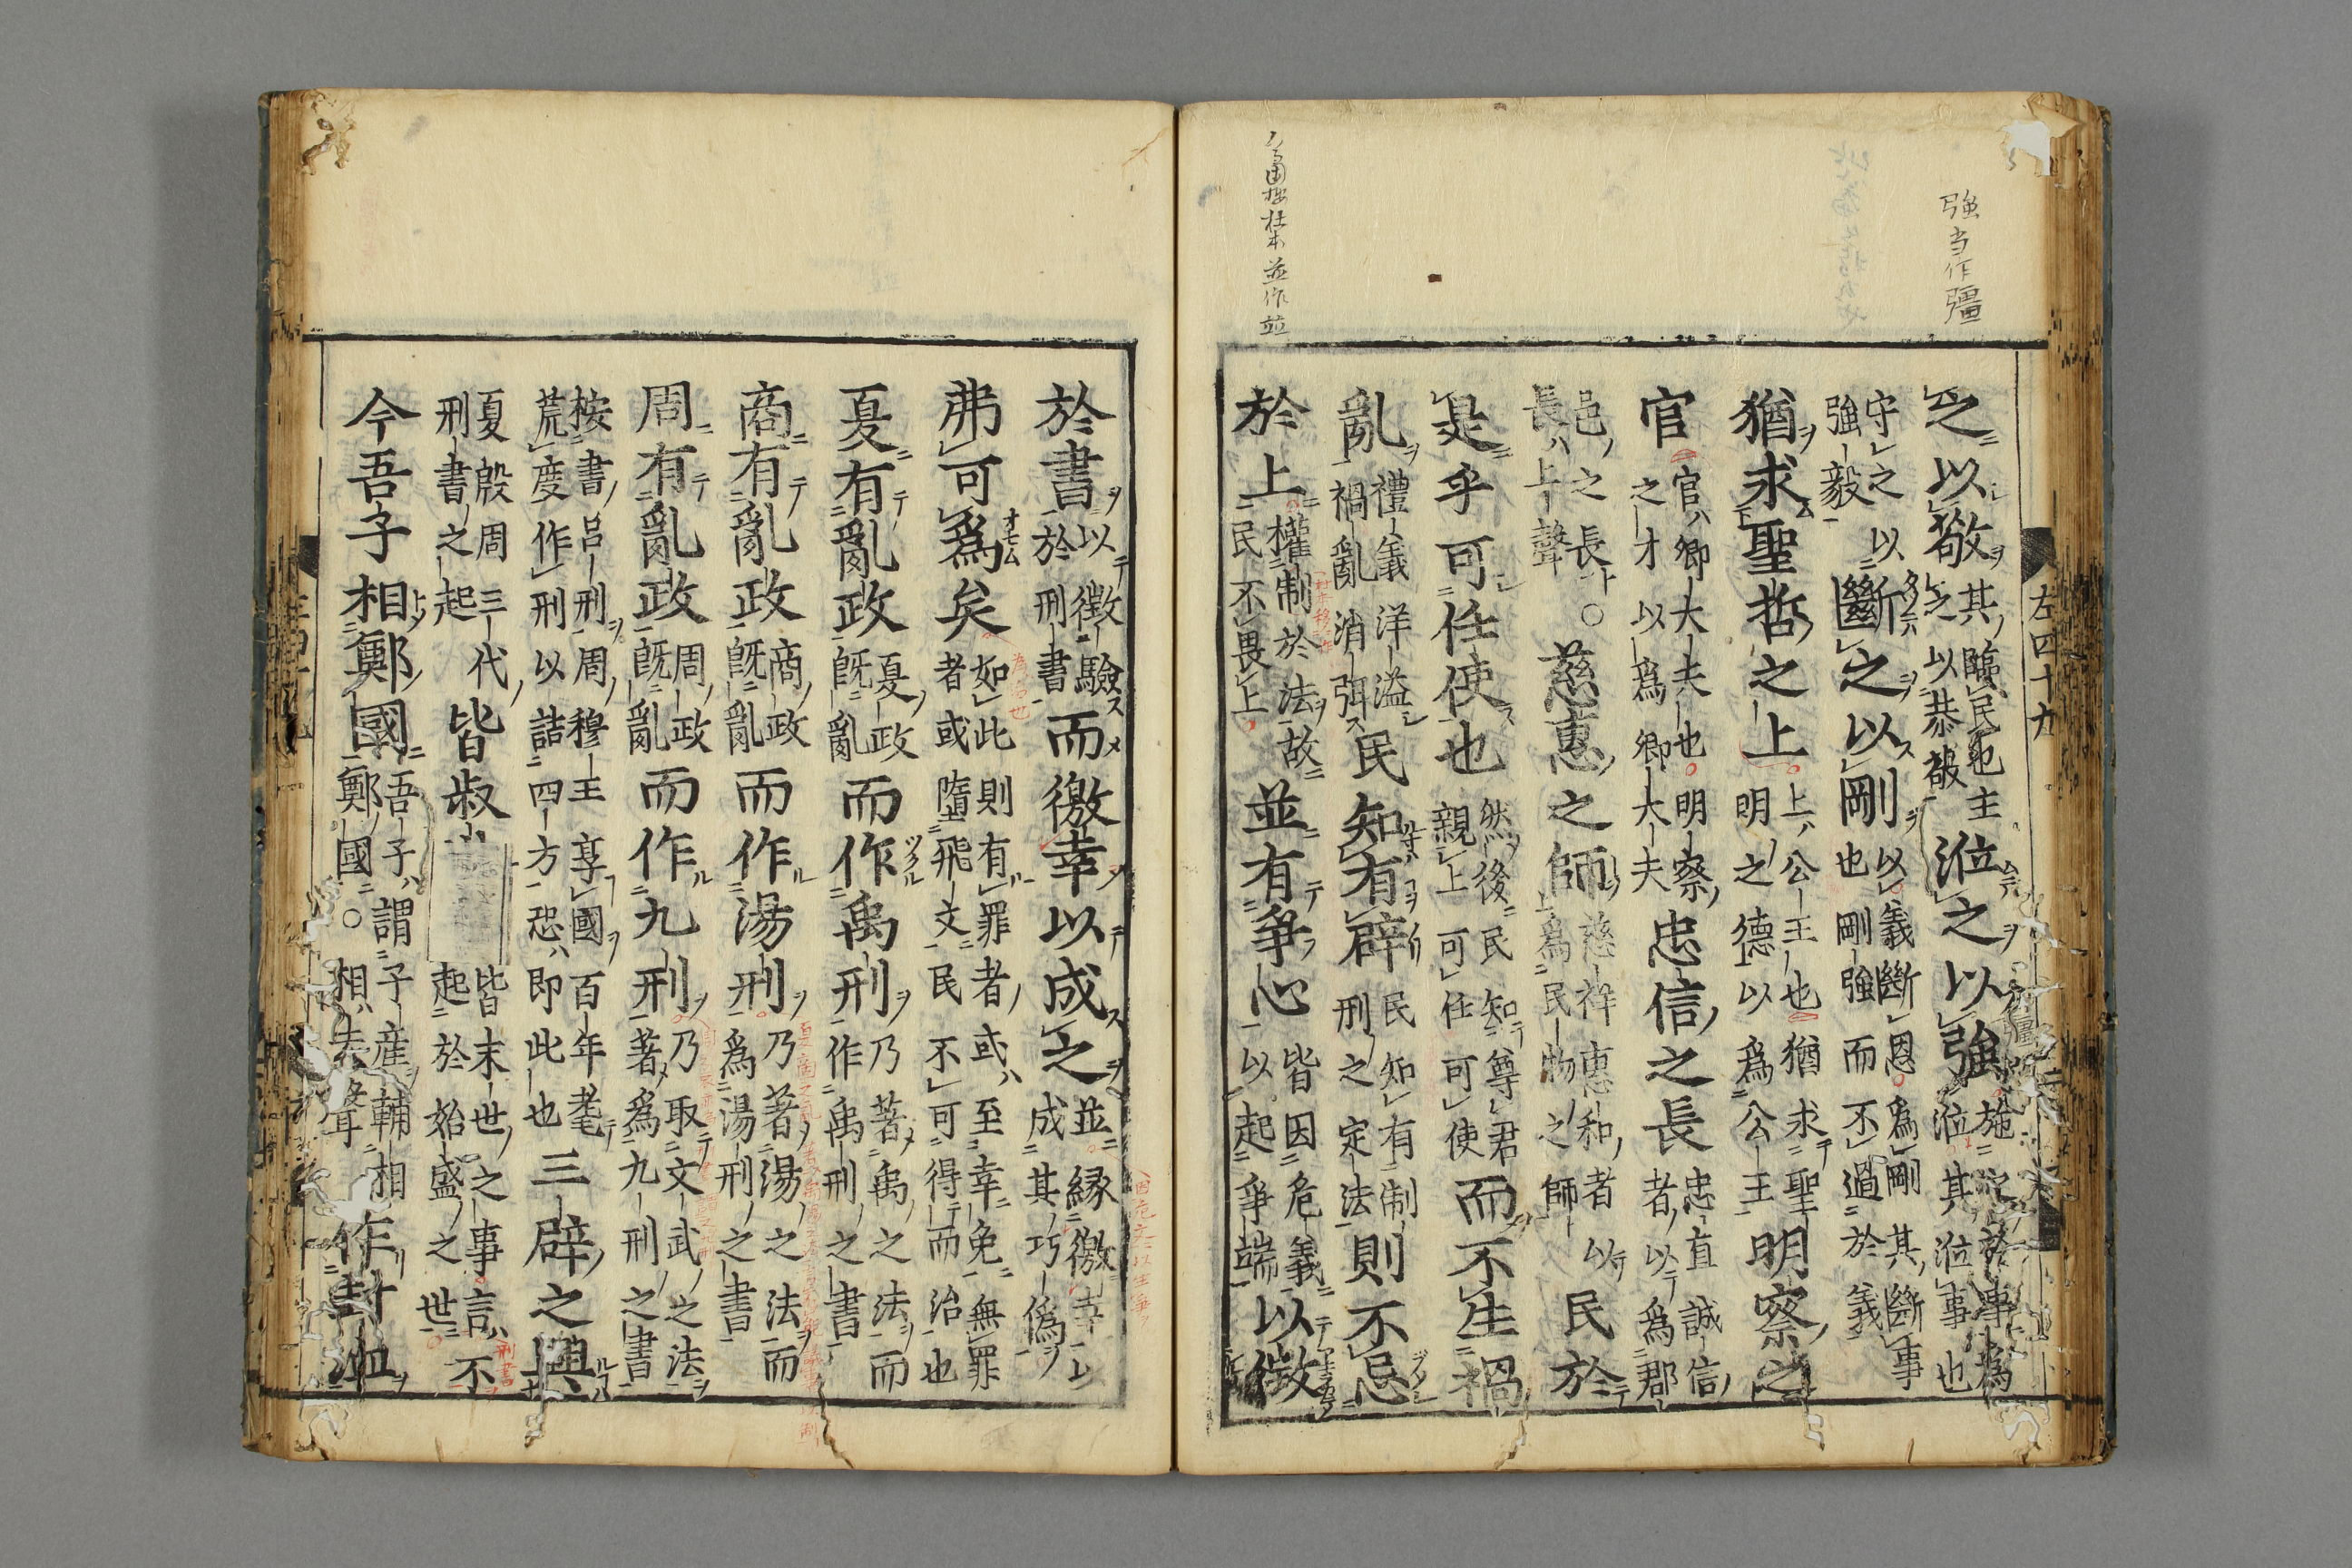 強当作彊
左四十九
之以敬其臨民也主之以恭敬涖之以強施事為涖其涖事也
守之以強毅斷之以剛以義斷恩為剛其斷事也剛強而不過於義
猶求聖哲之上上公王也猶求聖明之德以為公王明察之
官官卿大夫也明察之才以為卿大夫忠信之長忠直誠信者以為郡
邑之長長上聲○慈惠之師慈祥惠和者以為民物之師民於
是乎可任使也然後民知尊君親上可任可使而不生禍
亂禮義洋溢禍亂消弭民知有辟民知有制刑之定法則不忌
於上權制於法故民不畏上並有爭心皆因危義以起爭端以徵
於書以徵驗於刑書而徼幸以成之並緣徼幸以成其巧偽
弗可爲矣如此則有罪者或至幸免無罪者或墮飛文民不可得而治也
夏有亂政夏政既亂而作禹刑乃著禹之法而作禹刑之書
商有亂政商政既亂而作湯刑乃著湯之法而爲湯刑之書
周有亂政周政既亂而作九刑乃取文武之法著爲九刑之書
按書呂刑周穆王享國百年耄荒度作刑以詰四方恐即此也三辟之興
夏殷周三代刑書之起皆叔皆末世之事言不起於始盛之世
今吾子相鄭國吾子謂子產輔相鄭國○相去聲作封洫